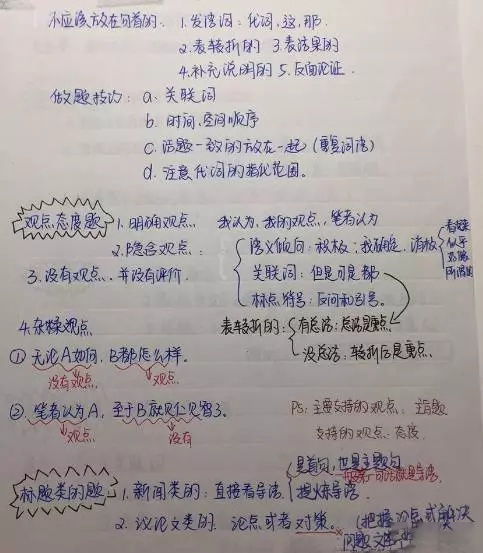 不应该放在句首的. 1.发语词: 代词,这,那.
2.表转折的 3.表结果的
4.补充说明的 5.反面论证.
做题技巧: a. 关联词
b. 时间,空间顺序
c. 话题一致的放在一起 (重复词语)
d. 注意代词的指代范围.
观点态度题
1.明确观点. 我认为,我的观点,笔者认为
2.隐含观点:
语义倾向: 积极: 我确定. 消极
似乎
关联词: 但是 可是 都
标点符号: 反问和引号.
3.没有观点. 并没有评价.
4.杂糅观点
表转折的: 有总法: 总法是重点.
没总法: 转折后是重点.
① 无论A如何, B都怎么样.
没有观点. 观点.
②. 笔者认为A, 至于B就见仁见智了.
观点. 没有
PS: 主要支持的观点: 主旨题
支持的观点: 态度.
标题类的题
1.新闻类的: 直接看导语.
是首句, 也是主题句
提炼导语.
2. 议论文类的. 论点或者对策. (把握论点或解决
问题